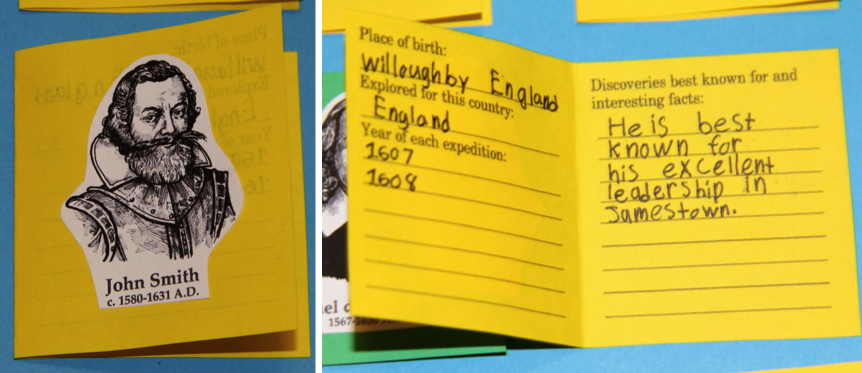 John Smith
c. 1580-1631 A.D.
Place of birth:
Willoughby England
Explored for this country:
England
Year of each expedition:
1607
1608
Discoveries best known for and
interesting facts:
He is best
known for
his excellent
leadership in
Jamestown.
el d
1567-